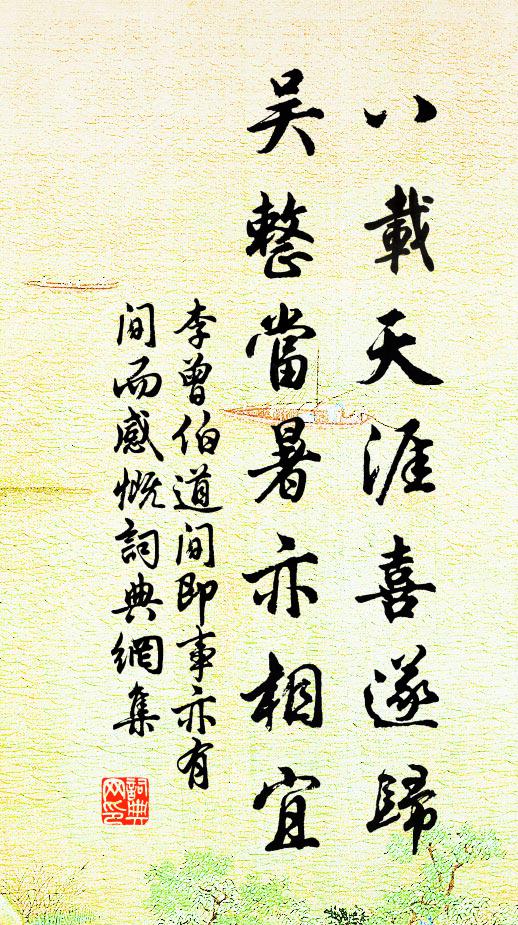 八載天涯喜遂歸
吴整當暑亦相宜
李曾伯道間即事亦有
間而感慨詞典網集
詞典
网印